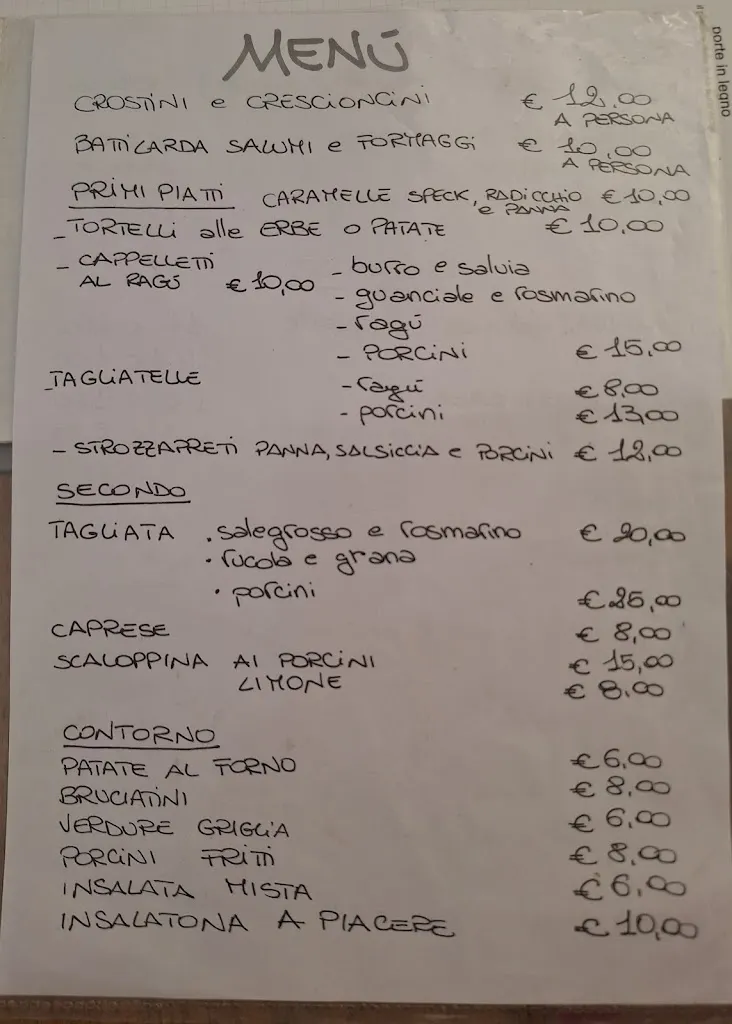 porte in legno
MENÚ
CROSTINI e CRESCIONCINI € 12,00
A PERSONA
BATTILARDA SALUMI e FORMAGGI € 10,00
A PERSONA
PRIMI PIATTI CARAMELLE SPECK, RADICCHIO € 10,00
e PANNA
- TORTELLI alle ERBE O PATATE € 10,00
- CAPPELLETTI - burro e salvia
AL RAGÚ € 10,00 - guanciale e rosmarino
- ragú
- PORCINI € 15,00
TAGLIATELLE - ragú € 8,00
- porcini € 13,00
- STROZZAPRETI PANNA, SALSICCIA e PORCINI € 12,00
SECONDO
TAGLIATA . salegrosso e rosmarino € 20,00
. rucola e grana
. porcini € 25,00
CAPRESE € 8,00
SCALOPPINA AI PORCINI € 15,00
LIMONE € 8,00
CONTORNO
PATATE AL FORNO € 6,00
BRUCIATINI € 8,00
VERDURE GRIGLIA € 6,00
PORCINI FRITTI € 8,00
INSALATA MISTA € 6,00
INSALATONA A PIACERE € 10,00